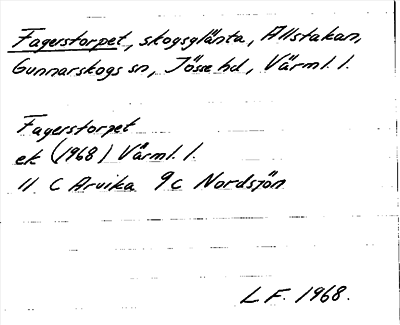 Fagerstorpet, skogsglänta, Allstakan,
Gunnarskogs sn, Jösse hd, Värml. l.
Fagerstorpet
ek (1968) Värml. l.
11 C Arvika 9c Nordsjön
L.F. 1968.